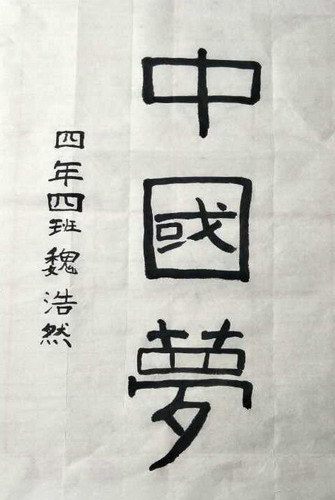 中國夢
四年四班魏浩然